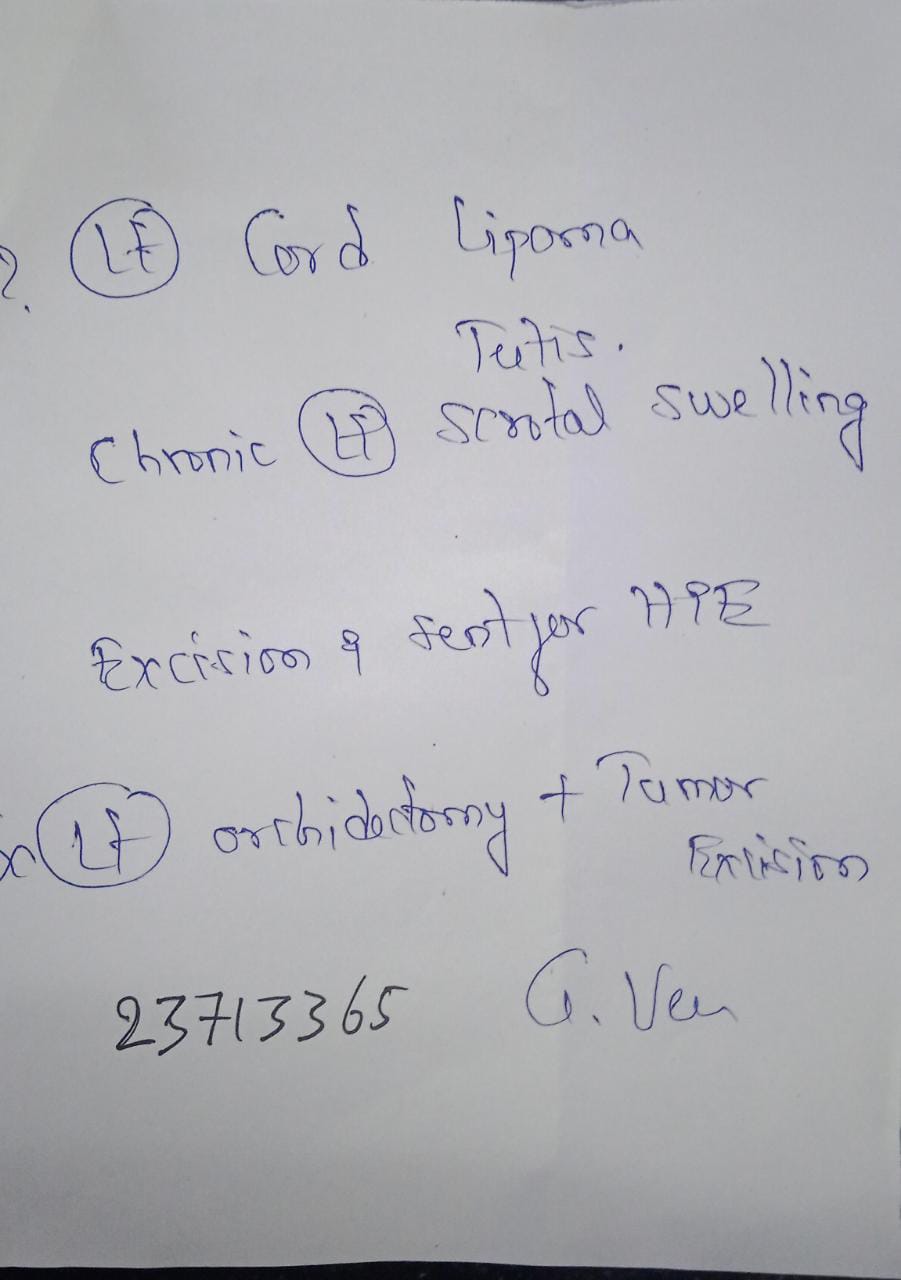 ? LF Cord Lipoma
Testis.
Chronic LF scrotal swelling
Excision & sent for HPE
LF orchidectomy + Tumor
Excision
23713365 G. Ven